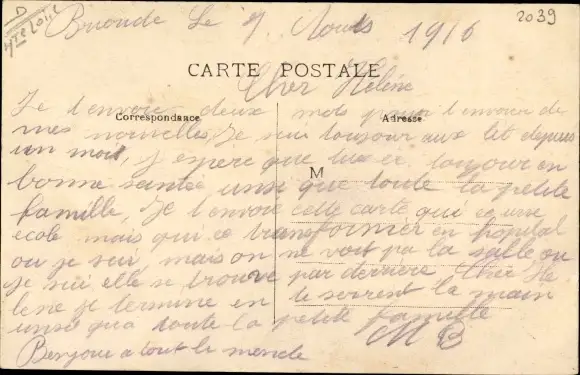 D
Hte Loire
2039
Brioude Le 9 Aouts 1916
CARTE POSTALE
Cher Hélène
Correspondance
Adresse
M
Je t'envoie deux mots pour t'envoier de
mes nouvelles, Je sui toujour aux lit depuis
un mois, j espère que tu ee toujour en
bonne santée unsi que toute la petite
famille, Je t'envoie cette carte qui ee une
ecole mais qui ce transformer en hopital
ou je sui, mais on ne voit pa la salle ou
je sui elle se trouve par derriere Cher He
lene je termine en te serrent la main
unsi qua toute la petite famille
M B
Bonjour a tout le monde